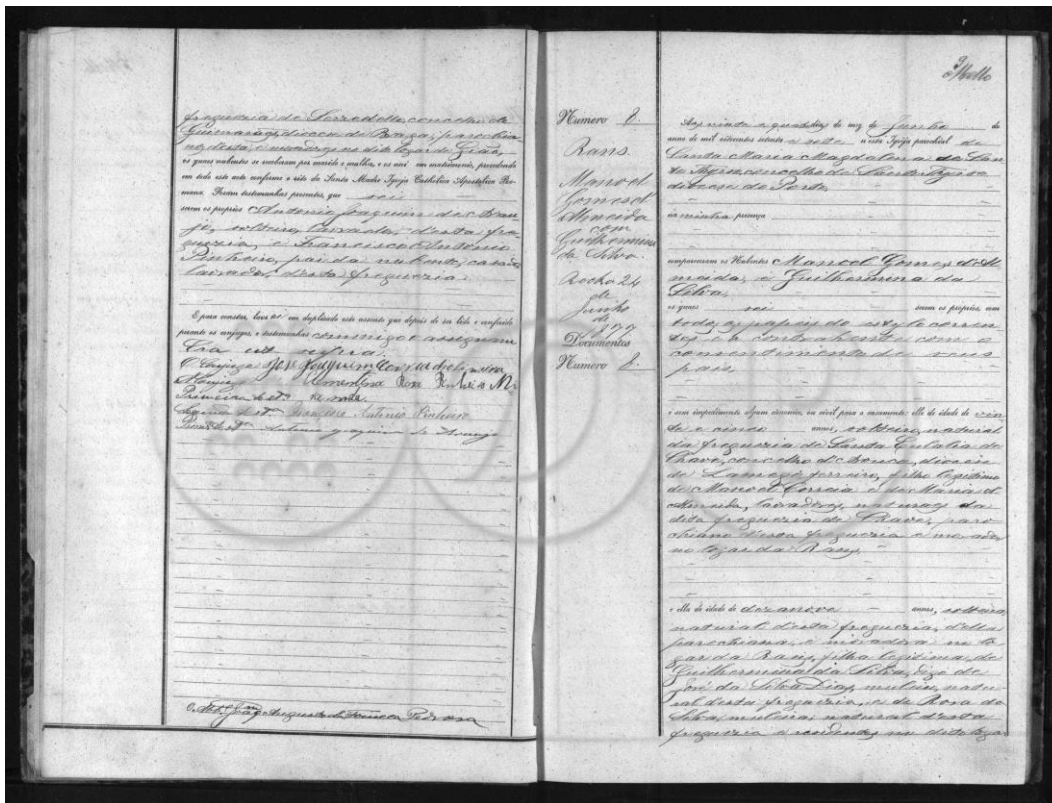 freguezia de Serzedello, concelho de
Guimarães, diocese de Braga, parochia
no d'esta, e morador no dito logar de Gião,
os quaes nubentes se receberam por marido e mulher, e os uni em matrimonio, procedendo
em todo este acto conforme o rito da Santa Madre Igreja Catholica Apostolica Ro-
mana. Foram testemunhas presentes, que sei
serem os proprios Antonio Joaquim de Arau-
jo, solteiro, lavrador, d'esta fre-
guezia, e Francisco Antonio
Pinheiro, pai da nubente, casado,
lavrador, d'esta freguezia
E para constar, lavrei em duplicado este assento que depois de ser lido e conferido
perante os conjuges, e testemunhas commigo assignam
Era ut supra.
O Conjuge José Joaquim
A Conjuge Rosa
Francisco Antonio Pinheiro
Antonio Joaquim de Araujo
Augusto da Fonseca Pedrosa
9
Mello
Numero 8.
Rans
Manoel
Gomes d'
Almeida
com
Guilhermina
da Silva.
24
de
Junho
de
1877
Documentos
Numero 8.
Aos vinte e quatro dias do mez de Junho do
anno de mil oitocentos setenta e sete n'esta Igreja parochial de
Santa Maria Magdalena de
concelho de Santo Thyrso
diocese do Porto
na minha presença
compareceram os Nubentes Manoel Gomes d'Al
meida, e Guilhermina da
Silva,
os quaes sei serem os proprios, com
todos os papeis do estylo corren
tes, e a contrahente com o
consentimento de seus
pais,
e sem impedimento algum canonico, ou civil para o casamento; elle de idade de vin
te e cinco annos, solteiro, natural
da freguezia de Santa Eulalia de
Chave, concelho d'Arouca, diocese
de Lamego, ferreiro, filho legitimo
de Manoel Correia e de Maria d'
Almeida, lavradores, naturaes da
dita freguezia de Chave, paro
chiano d'esta freguezia e morador
no logar da Rans,
e ella de idade de dezanove annos, solteira,
natural d'esta freguezia, d'ella
parochiana, e moradora no lo
gar da Rans, filha legitima, de
Guilhermina da Silva, digo de
José da Silva Dias, natu
ral desta freguezia, e de Rosa da
Silva, natural d'esta
freguezia e residentes no dito logar